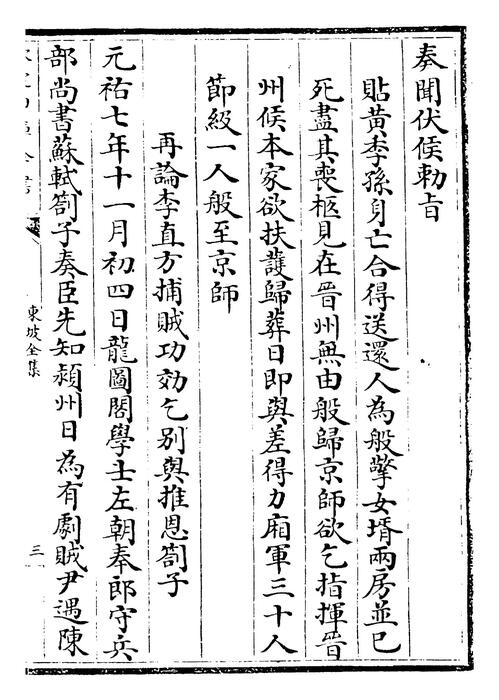 奏聞伏候勅旨
貼黄李孫身亡合得送還人為般挈女壻兩房並已
死盡其喪柩見在晉州無由般歸京師欲乞指揮晉
州候本家欲扶護歸葬日即與差得力廂軍三十人
節級一人般至京師
再論李直方捕賊功効乞别與推恩劄子
元祐七年十一月初四日龍圖閣學士左朝奉郎守兵
部尚書蘇軾劄子奏臣先知潁州日為有劇賊尹遇陳
東坡全集
三